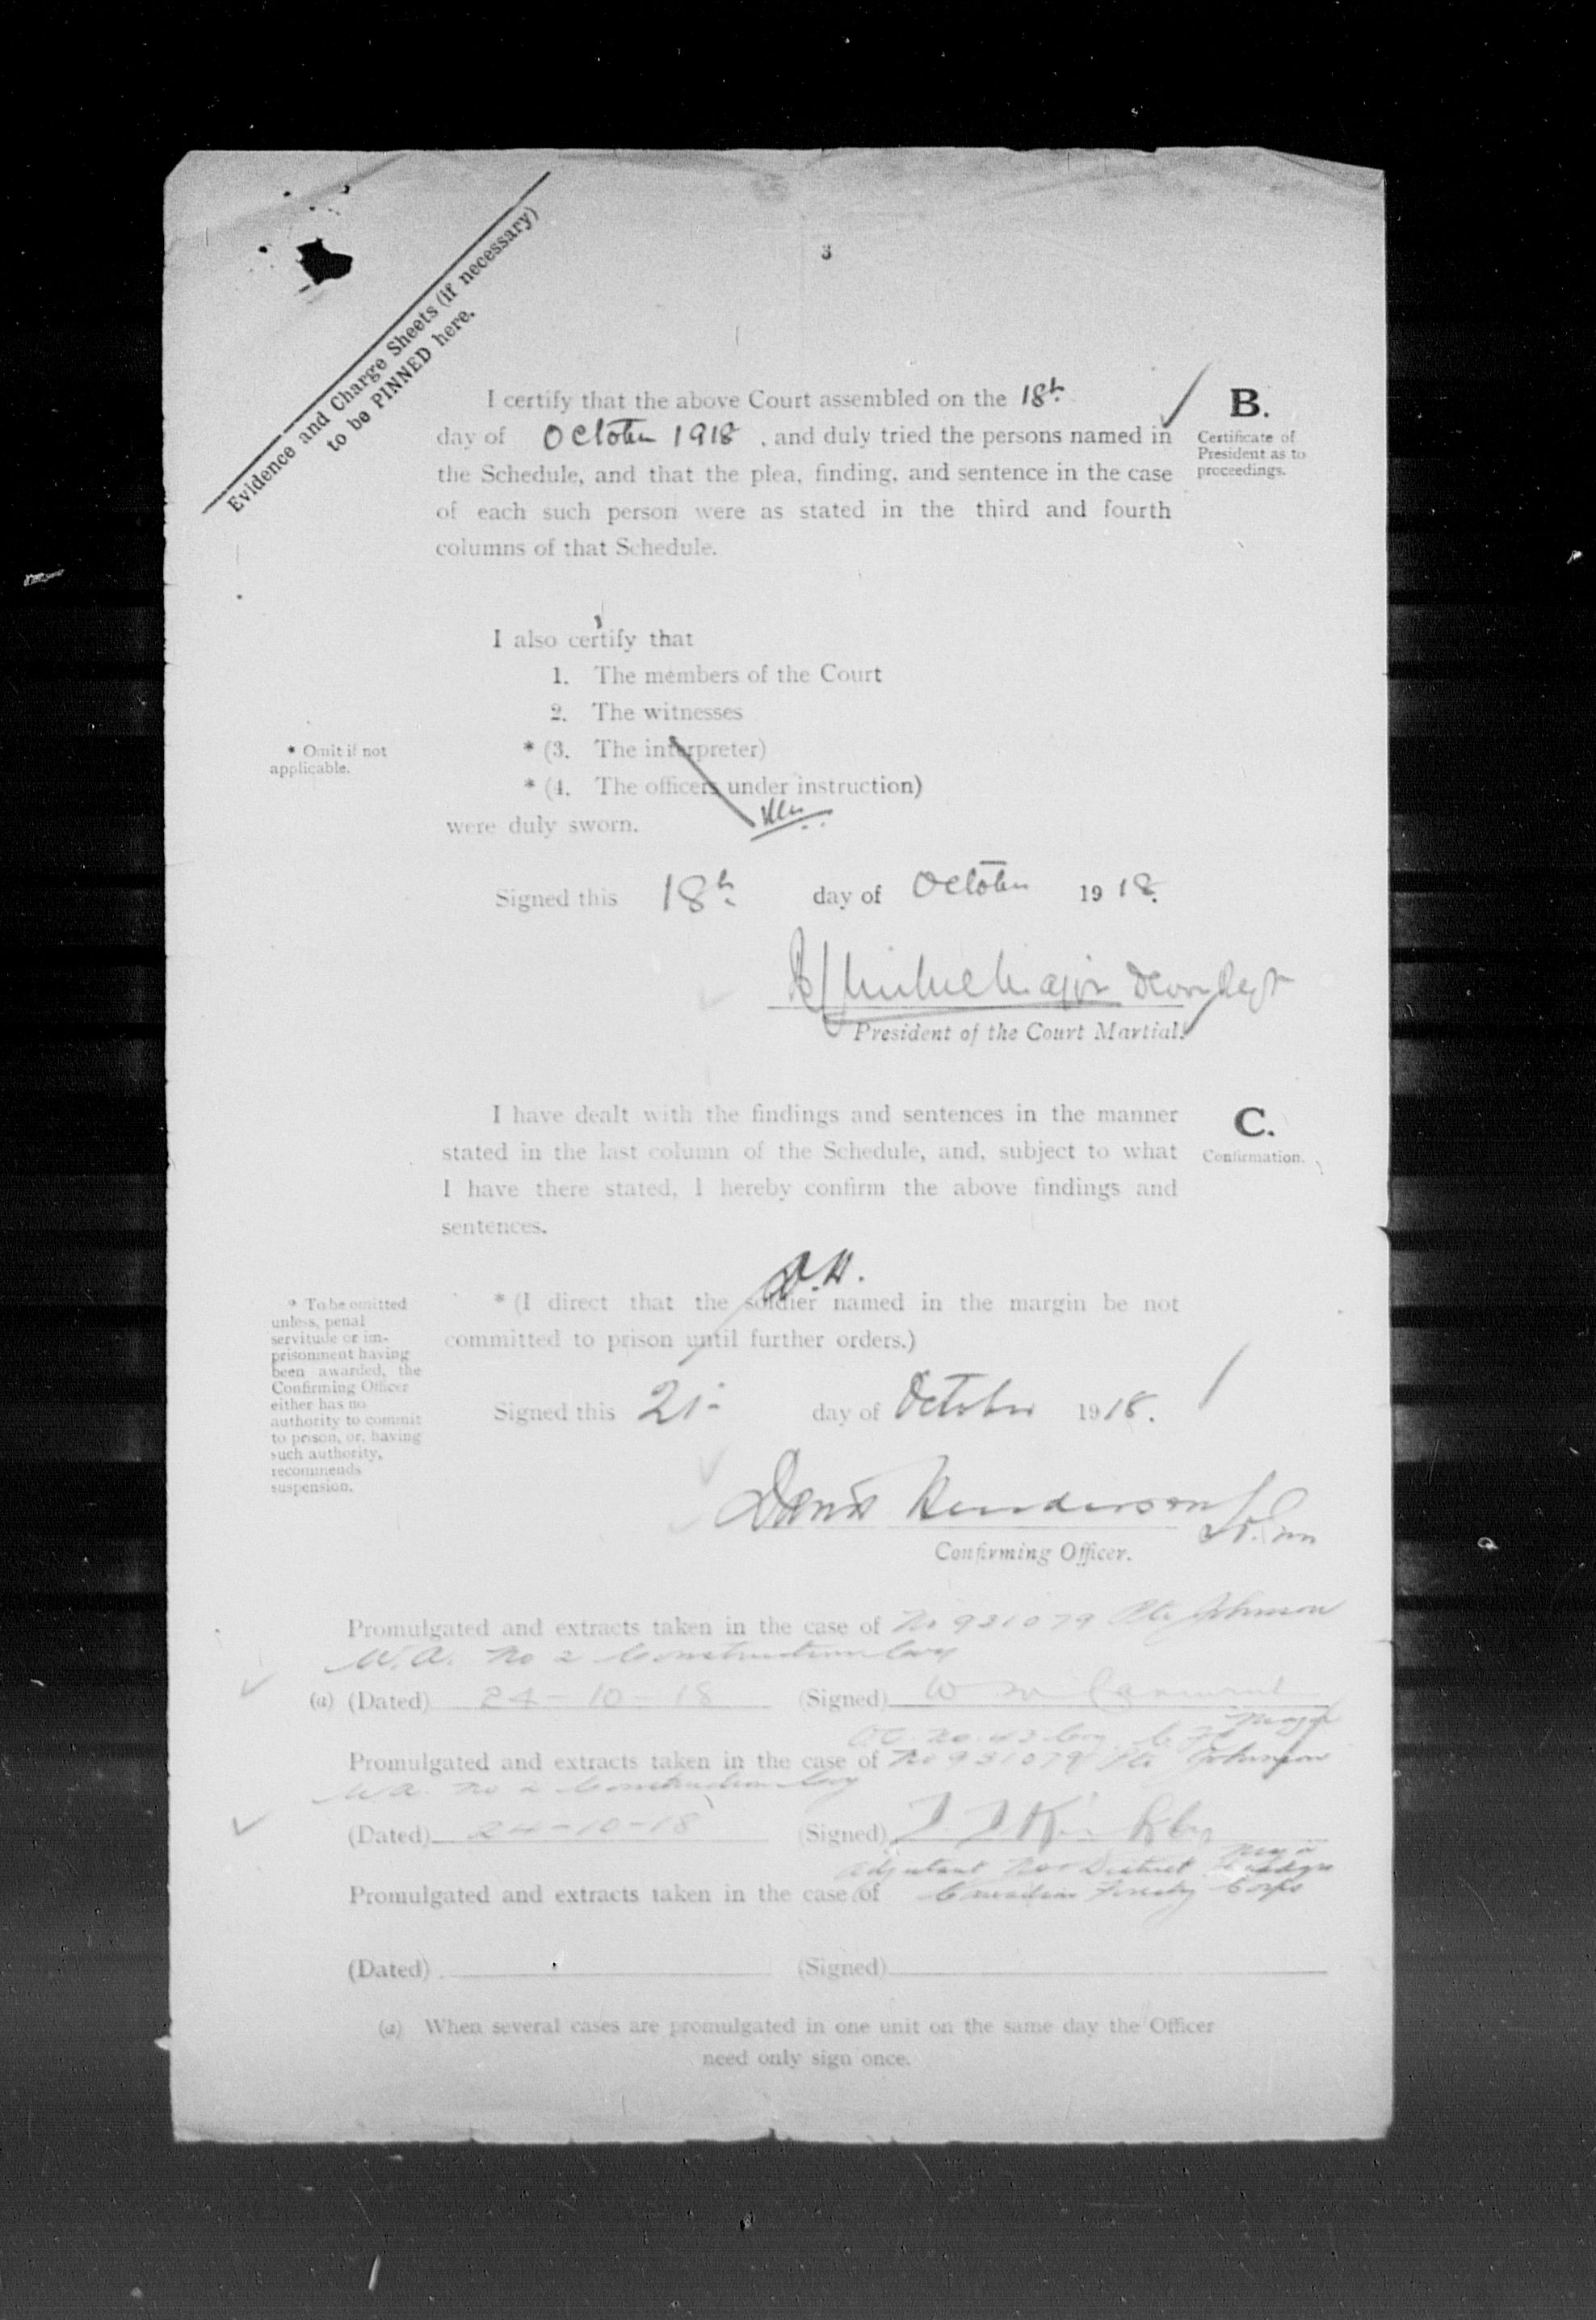 3
Evidence and Charge Sheets (if necessary)
to be PINNED here.
I certify that the above Court assembled on the 18th
day of October 1918, and duly tried the persons named in
the Schedule, and that the plea, finding, and sentence in the case
of each such person were as stated in the third and fourth
columns of that Schedule.
B.
Certificate of
President as to
proceedings.
I also certify that
1. The members of the Court
2. The witnesses
* (3. The interpreter)
* (4. The officers under instruction)
were duly sworn.
* Omit if not
applicable.
Signed this 18th day of October 1918.
Major Devon Regt
President of the Court Martial.
I have dealt with the findings and sentences in the manner
stated in the last column of the Schedule, and, subject to what
I have there stated, I hereby confirm the above findings and
sentences.
C.
Confirmation.
D.H.
* (I direct that the soldier named in the margin be not
committed to prison until further orders.)
* To be omitted
unless, penal
servitude or im-
prisonment having
been awarded, the
Confirming Officer
either has no
authority to commit
to prison, or, having
such authority,
recommends
suspension.
Signed this 21st day of October 1918.
David Henderson Lt. Gen
Confirming Officer.
Promulgated and extracts taken in the case of No 931079 Pte Johnson
W.A. No 2 Construction Coy
(a) (Dated) 24-10-18 (Signed) W
Major
O.C. No. 43 Coy. C.F.C.
Promulgated and extracts taken in the case of No 931079 Pte Johnson
W.A. No 2 Construction Coy
(Dated) 24-10-18 (Signed)
Major
Adjutant No District
Promulgated and extracts taken in the case of Canadian Forestry Corps
(Dated) (Signed)
(a) When several cases are promulgated in one unit on the same day the Officer
need only sign once.